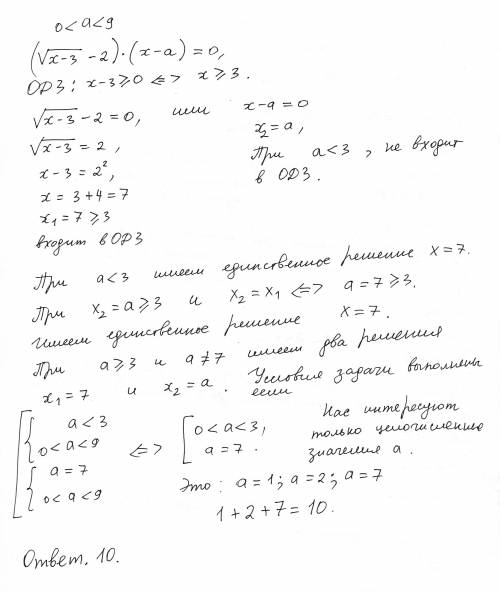 0 < a < 9
(√x-3 - 2)·(x-a) = 0,
ОДЗ: x-3 ⩾ 0 <=> x ⩾ 3.
√x-3 - 2 = 0, или x-a = 0
√x-3 = 2, x₂ = a,
x-3 = 2², При a < 3, не входит
x = 3+4 = 7 в ОДЗ.
x₁ = 7 ⩾ 3
входит в ОДЗ
При a < 3 имеем единственное решение x = 7.
При x₂ = a ⩾ 3 и x₂ = x₁ <=> a = 7 ⩾ 3.
Имеем единственное решение x = 7.
При a ⩾ 3 и a ≠ 7 имеем два решения
x₁ = 7 и x₂ = a. Условия задачи выполнены
если
[ { a < 3
0 < a < 9 <=> [ 0 < a < 3,
{ a = 7 a = 7.
0 < a < 9
Нас интересуют
только целочисленные
значения a.
Это: a = 1; a = 2; a = 7
1 + 2 + 7 = 10.
Ответ. 10.